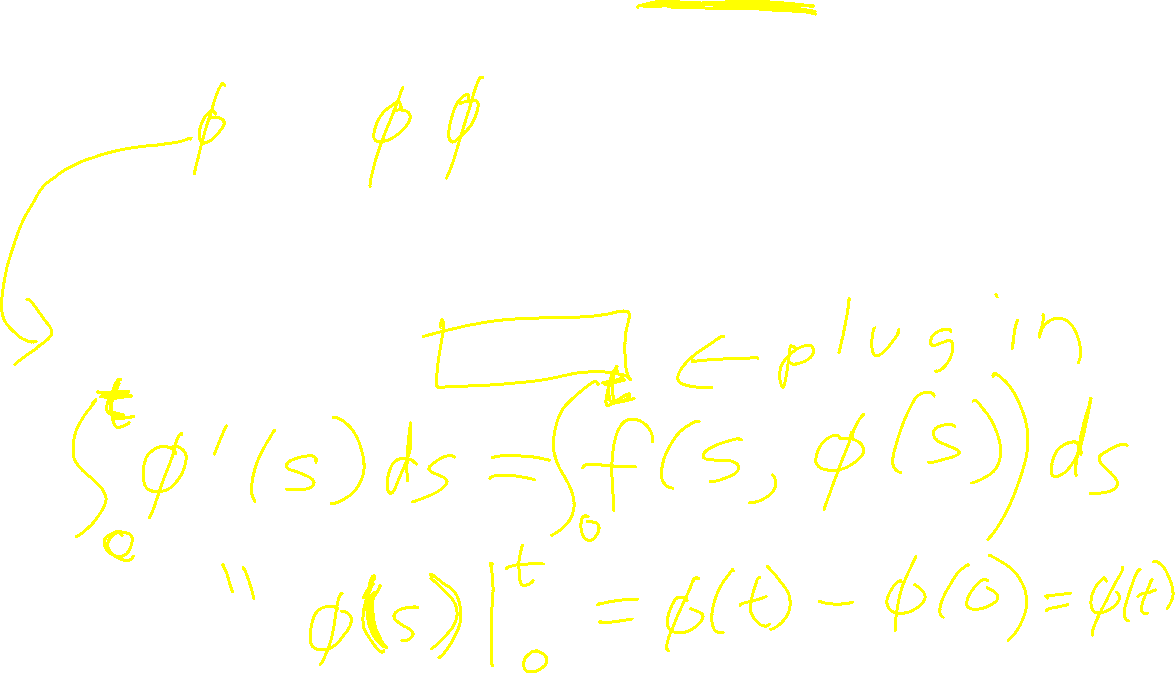 ϕ ϕ ϕ
← plug in
∫₀ᵗ ϕ'(s) ds = ∫₀ᵗ f(s, ϕ(s)) ds
" ϕ(s)|₀ᵗ = ϕ(t) - ϕ(0) = ϕ(t)